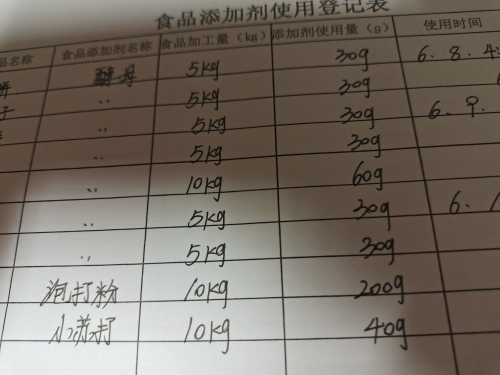 食品添加剂使用登记表
品名称 食品添加剂名称 食品加工量（kg） 添加剂使用量（g） 使用时间
酵母 5kg 30g 6、8、4
子 〃 5kg 30g
〃 5kg 30g 6、9、
〃 5kg 30g
〃 10kg 60g
〃 5kg 30g 6、1
〃 5kg 30g
泡打粉 10kg 200g
小苏打 10kg 40g